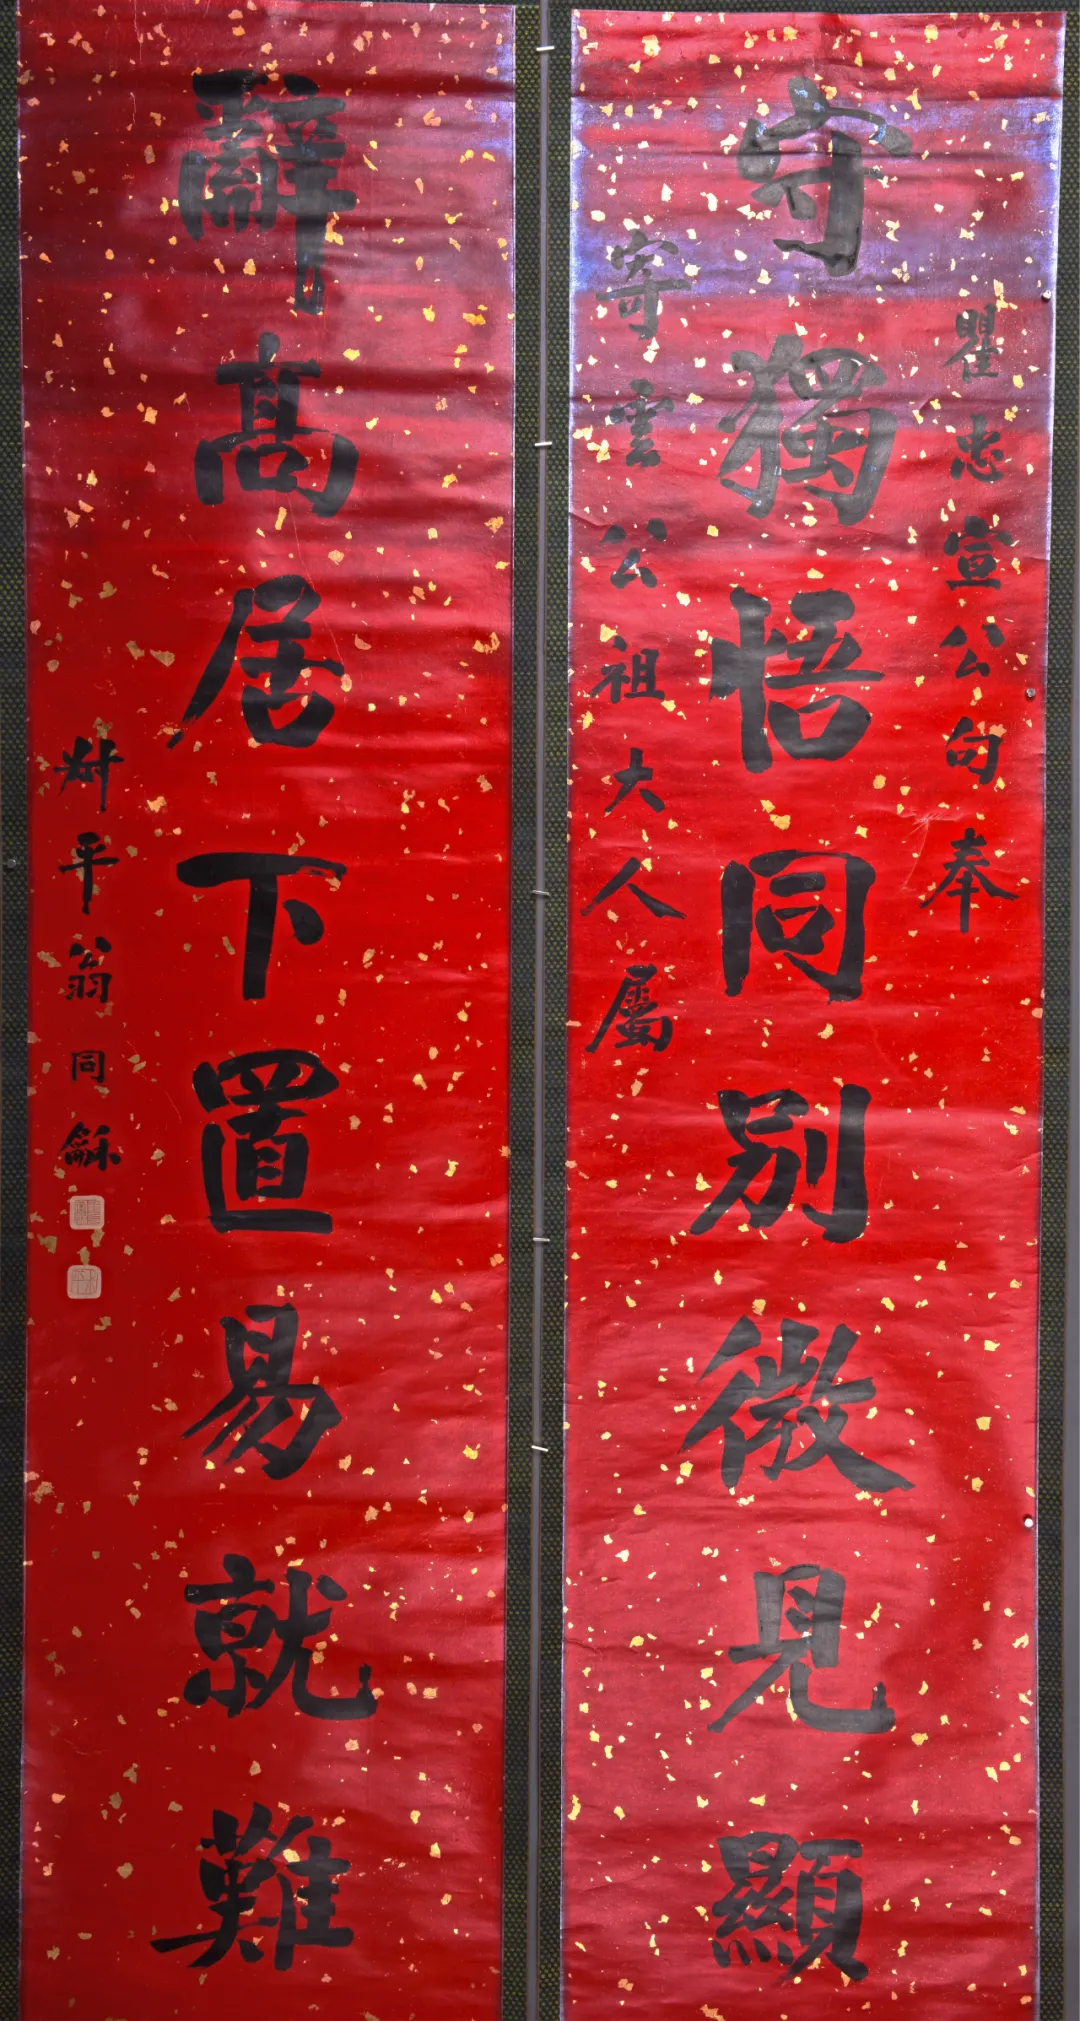 瞿忠宣公句奉
守獨悟同別微見顯
寄雲公祖大人屬
辭高居下置易就難
尗平翁同龢